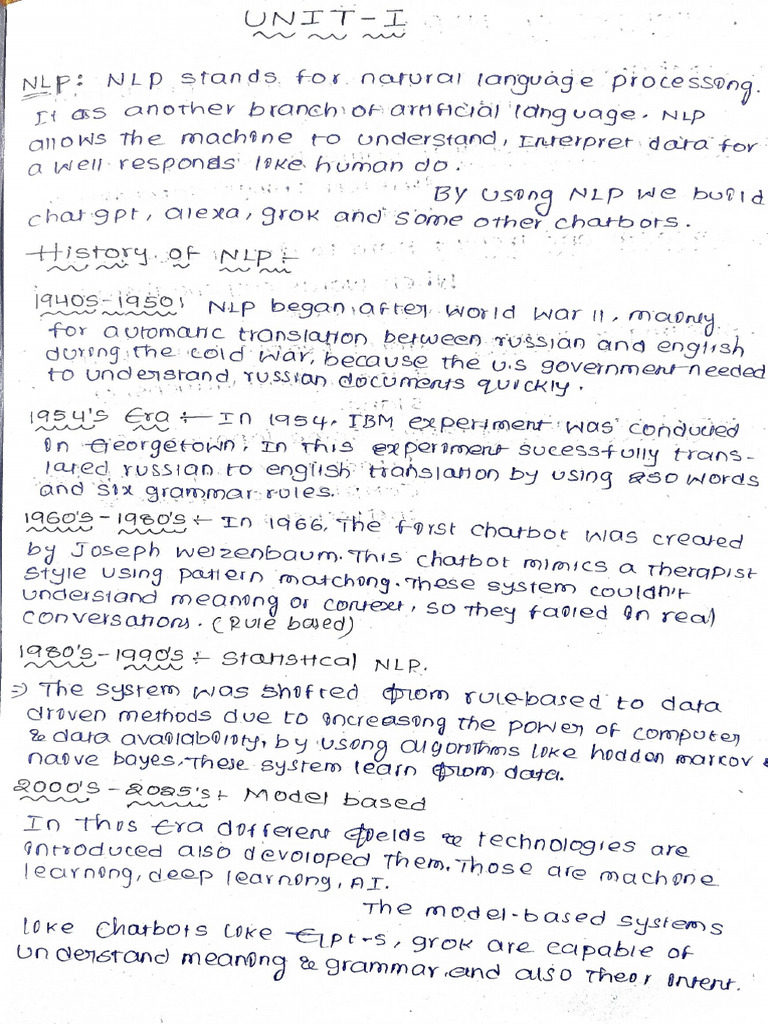 UNIT-I
NLP: NLP stands for natural language processing.
It is another branch of artificial language. NLP
allows the machine to understand, Interpret data for
a well responds like human do.
By using NLP we build
chat gpt, alexa, grok and some other chatbots.
History of NLP :-
1940's-1950: NLP began after World War II, mainly
for automatic translation between russian and english
during the cold war, because the U.S government needed
to understand russian documents quickly.
1954's Era :- In 1954, IBM experiment was conducted
in Georgetown. In this experiment sucessfully trans-
lated russian to english translation by using 250 words
and six grammar rules.
1960's - 1980's :- In 1966, The first chatbot was created
by Joseph Weizenbaum. This chatbot mimics a Therapist
style using pattern matching. These system couldn't
understand meaning or context, so they failed in real
conversations. (Rule based)
1980's-1990's :- Statistical NLP.
⇒ The system was shifted from rule-based to data
driven methods due to increasing the power of computer
& data availability, by using algorithms like hidden markov &
naive bayes. These system learn from data.
2000's - 2025's :- Model based
In this Era different fields & technologies are
introduced also developed them. Those are machine
learning, deep learning, AI.
The model-based systems
like chatbots like Gpt-5, grok are capable of
understand meaning & grammar, and also their intent.